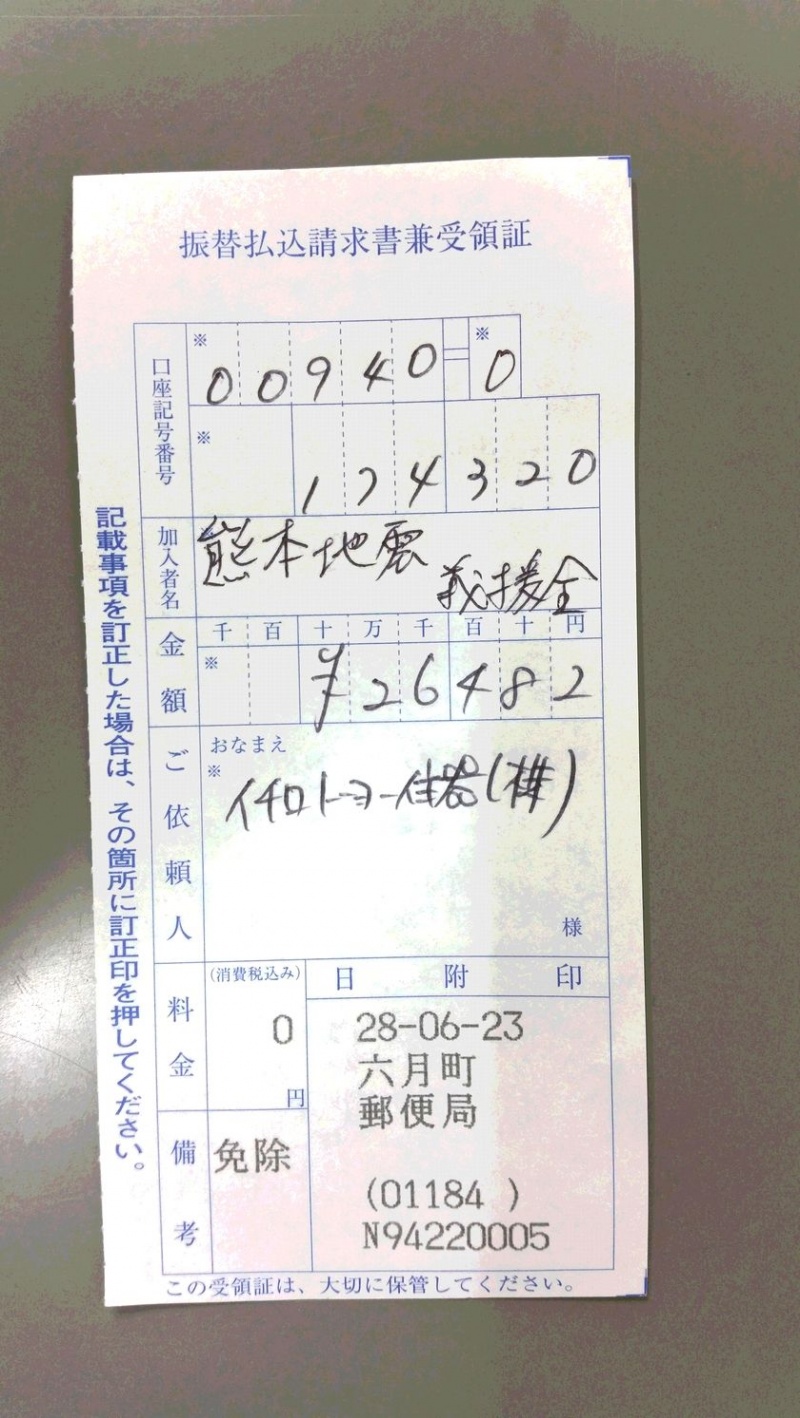 振替払込請求書兼受領証
口座記号番号
※ 00940 ※ 0
※ 174320
加入者名
熊本地震
義援金
金額
千 百 十 万 千 百 十 円
※ ¥26482
ご依頼人
おなまえ
※
イチロトーヨー住器(株)
様
料金
(消費税込み)
0
円
日 附 印
28-06-23
六月町
郵便局
(01184 )
N94220005
備考
免除
この受領証は、大切に保管してください。
記載事項を訂正した場合は、その箇所に訂正印を押してください。